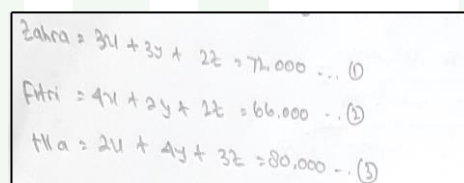 Zahra = 3x + 3y + 2z = 72.000 ... ①
Fitri = 4x + 2y + 2z = 66.000 ... ②
tka = 2x + 4y + 3z = 80.000 ... ③